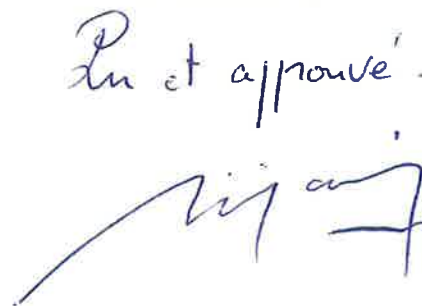 Lu et approuvé.